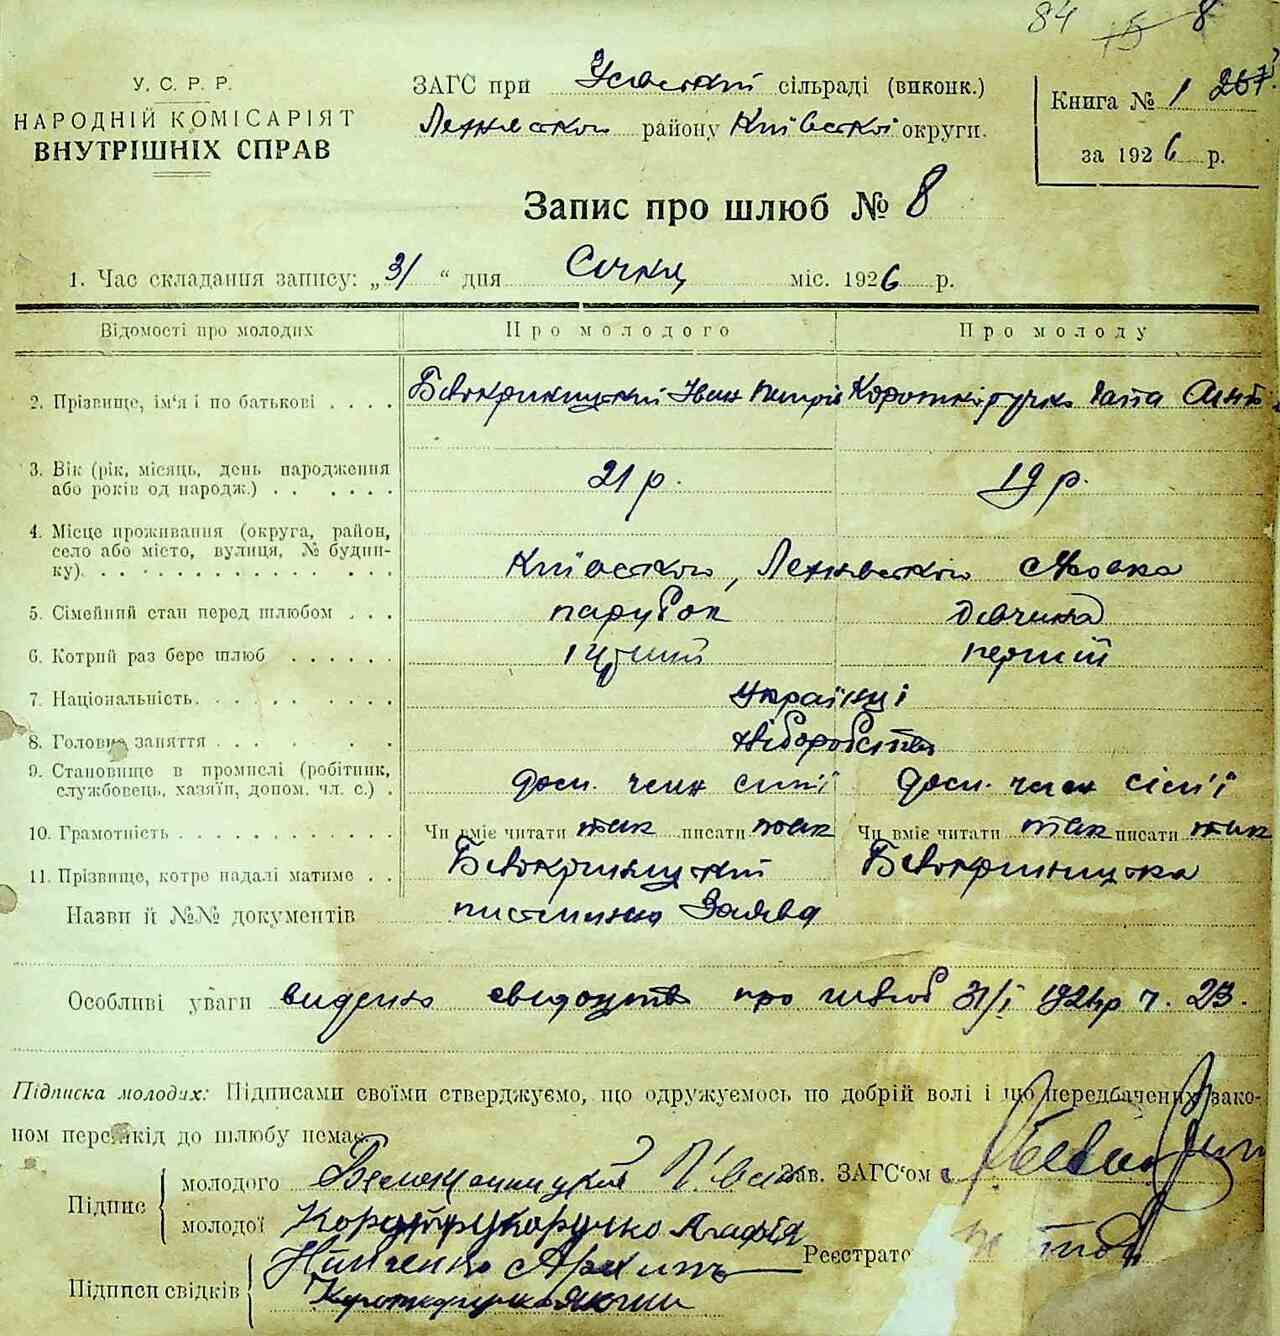 84 15 8
У. С. Р. Р.
НАРОДНІЙ КОМІСАРІЯТ
ВНУТРІШНІХ СПРАВ
ЗАГС при сільраді (виконк.)
району Київської округи.
Книга № 1 267
за 1926 р.
Запис про шлюб № 8
1. Час складання запису: „31“ дня Січня міс. 1926 р.
Відомості про молодих Про молодого Про молоду
2. Прізвище, ім'я і по батькові . . . . Білокриницький Іван Петрів Короткоручко Гапа
3. Вік (рік, місяць, день народження
або років од народж.) . . . . . . 21 р. 19 р.
4. Місце проживання (округа, район,
село або місто, вулиця, № будин-
ку). . . . . . . . . . . . . . . Київської,
5. Сімейний стан перед шлюбом . . . парубок дівчина
6. Котрий раз бере шлюб . . . . . . перший
7. Національність. . . . . . . . . . українці
8. Головне заняття . . . . . . . хліборобство
9. Становище в промислі (робітник,
службовець, хазяїн, допом. чл. с.) . доп. член сім'ї доп. член сім'ї
10. Грамотність . . . . . . . . . . . . Чи вміє читати так писати так Чи вміє читати так писати так
11. Прізвище, котре надалі матиме . . Білокриницький Білокриницка
Назви й №№ документів заява
Особливі уваги видано про шлюб 31/I 1926 р ч. 23.
Підписка молодих: Підписами своїми стверджуємо, що одружуємось по добрій волі і що передбачених зако-
ном перешкід до шлюбу немає.
Підпис молодого Зав. ЗАГС'ом
молодої Агафія
Реєстрато
Підписи свідків